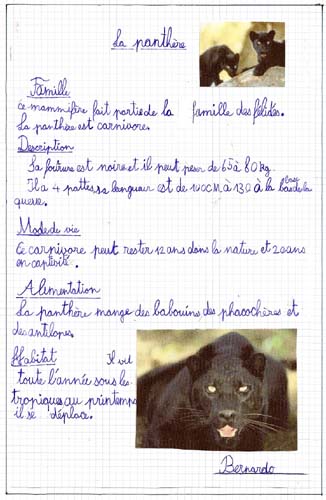 La panthère
Famille
ce mammifère fait partie de la famille des félidés.
La panthère est carnivore.
Description
Sa fourrure est noire et il peut peser de 65 à 80 kg
Il a 4 pattes sa longueur est de 100CM à 130 à la base de la
queue.
Mode de vie
Ce carnivore peut rester 12 ans dans la nature et 20 ans
en captivité.
Alimentation
La panthère mange des babouins des phacochères et
des antilopes.
Habitat Il vit
toute l'année sous les
tropiques au printemps
il se déplace.
Bernardo